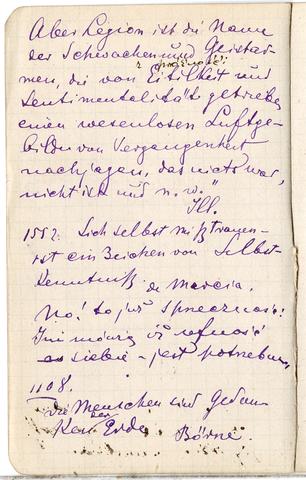 Aber Legion ist die Name
der Schwachen und Geistar-
i próżność
men, die von Eitelkeit und
Sentimentalität getrieben
einen wesenlosen Luftge-
bilde von Vergangenheit
nachjagen, das nichts war,
nicht ist und n. w."
Ill.
1552. Sich selbst mißtrauen
ist ein Zeichen von Selbst-
Kenntniß de Marcia.
No! to już sprzeczność!
Inni mówią że ufność
siebie - jest potrzebna,
1108.
Die Menschen sind Gedan-
ken der Erde Börne.